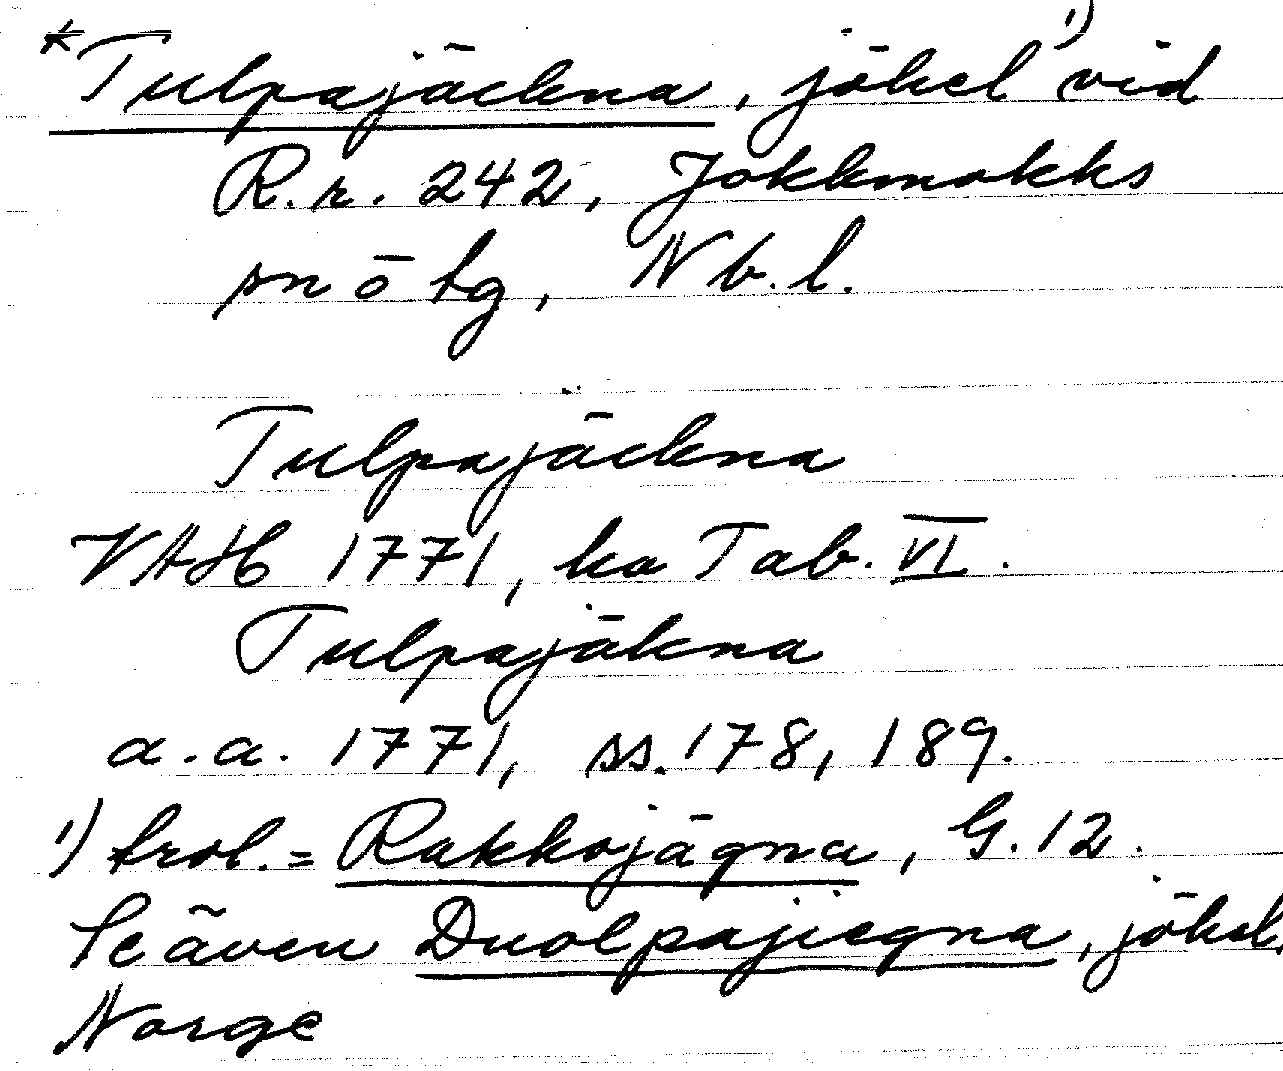 *Tulpajäckna, jökel ¹) vid
R.r. 242, Jokkmokks
sn o tg, Nb. l.
Tulpajäckna
VAH 1771, ka Tab. VI.
Tulpajäkna
a.a. 1771, ss. 178, 189.
¹) trol. = Rukkojägna, G. 12.
Se även Duolpajiegna, jökel,
Norge